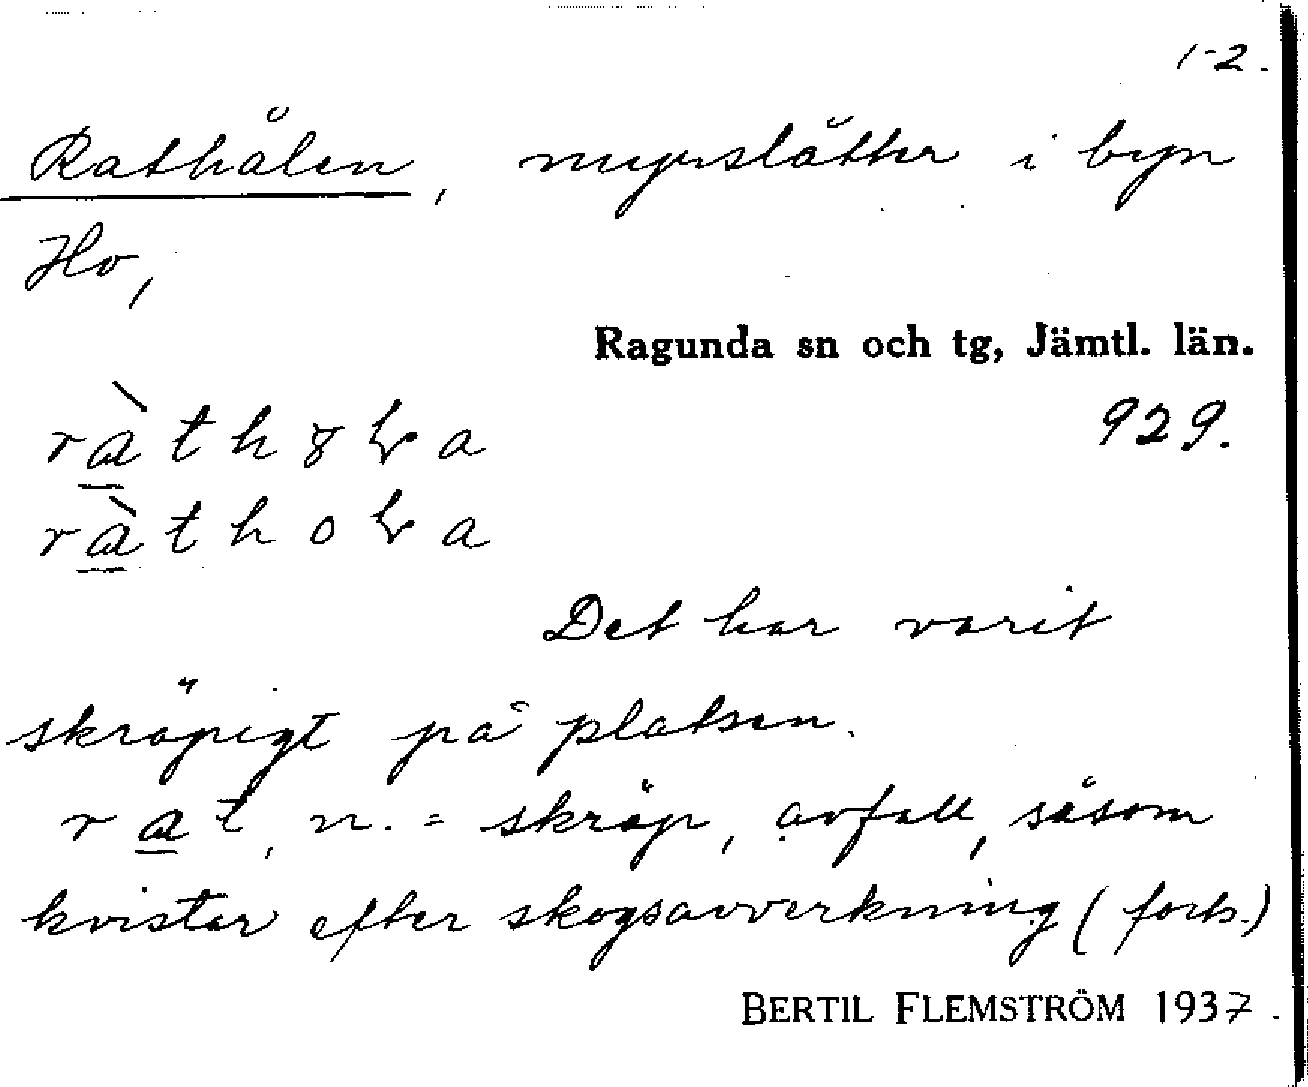 1-2.
Rathålen, myrslåtter i byn
Ho,
Ragunda sn och tg, Jämtl. län.
929.
Det har varit
skräpigt på platsen.
rat, n. = skräp, avfall, såsom
kvistar efter skogsavverkning (forts.)
BERTIL FLEMSTRÖM 1937.